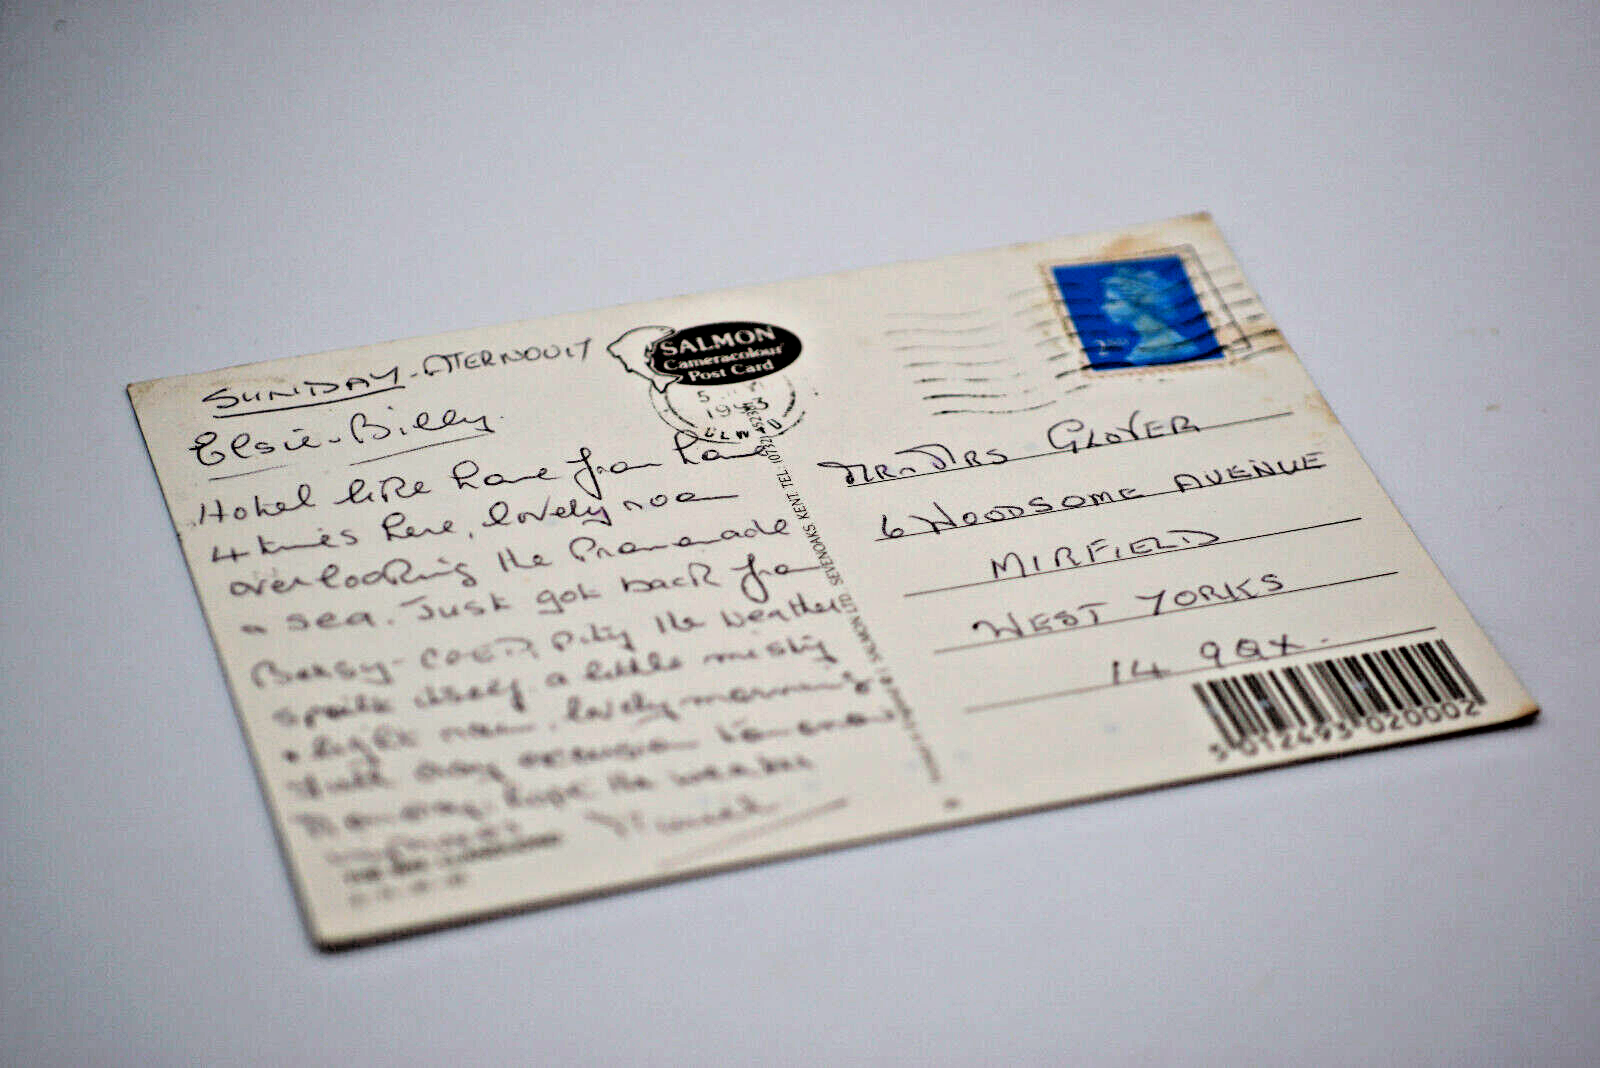 SUNDAY - AFTERNOON
Elsie - Billy
Hotel like home from home
4 times here, lovely room
overlooking the Promenade
+ sea. Just got back from
Betsy-COED, pity the weather
spoilt itself a little misty
+ light rain, lovely morning
excursion tomorrow
hope the weather
SALMON
Cameracolour
Post Card
1993
2ND
MR. MRS GLOVER
6 WOODSOME AVENUE
MIRFIELD
WEST YORKS
14 9QX.
J SALMON LTD SEVENOAKS KENT TEL: (0732) 452381
5 012493 020002